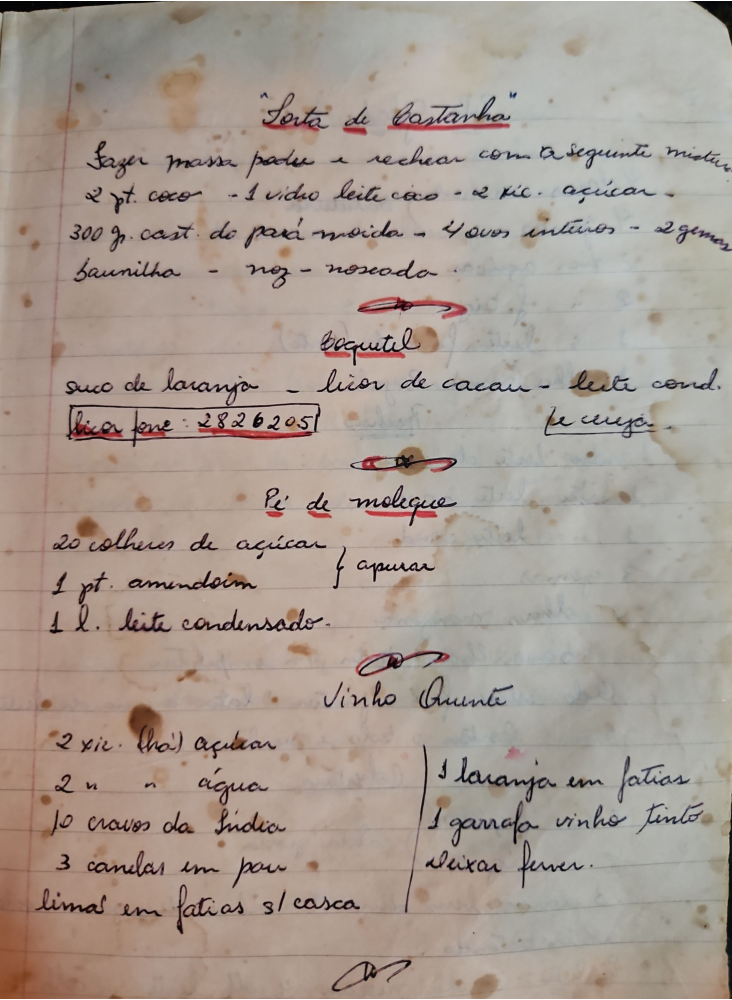 "Torta de Castanha"
Fazer massa podre e rechear com a seguinte mistura
2 pt. coco - 1 vidro leite coco - 2 xic. açúcar -
300 gr. cast. do pará moida - 4 ovos inteiros - 2 gemas
baunilha - noz-noscada.
Coquitel
suco de laranja - licor de cacau - leite cond.
licor fone: 2826205
e cereja
Pé de moleque
20 colheres de açúcar
1 pt. amendoim } apurar
1 l. leite condensado.
Vinho Quente
2 xic. (há) açúcar
2 " " água
10 cravos da Índia
3 canelas em pau
lima em fatias s/ casca
1 laranja em fatias
1 garrafa vinho tinto
deixar ferver.